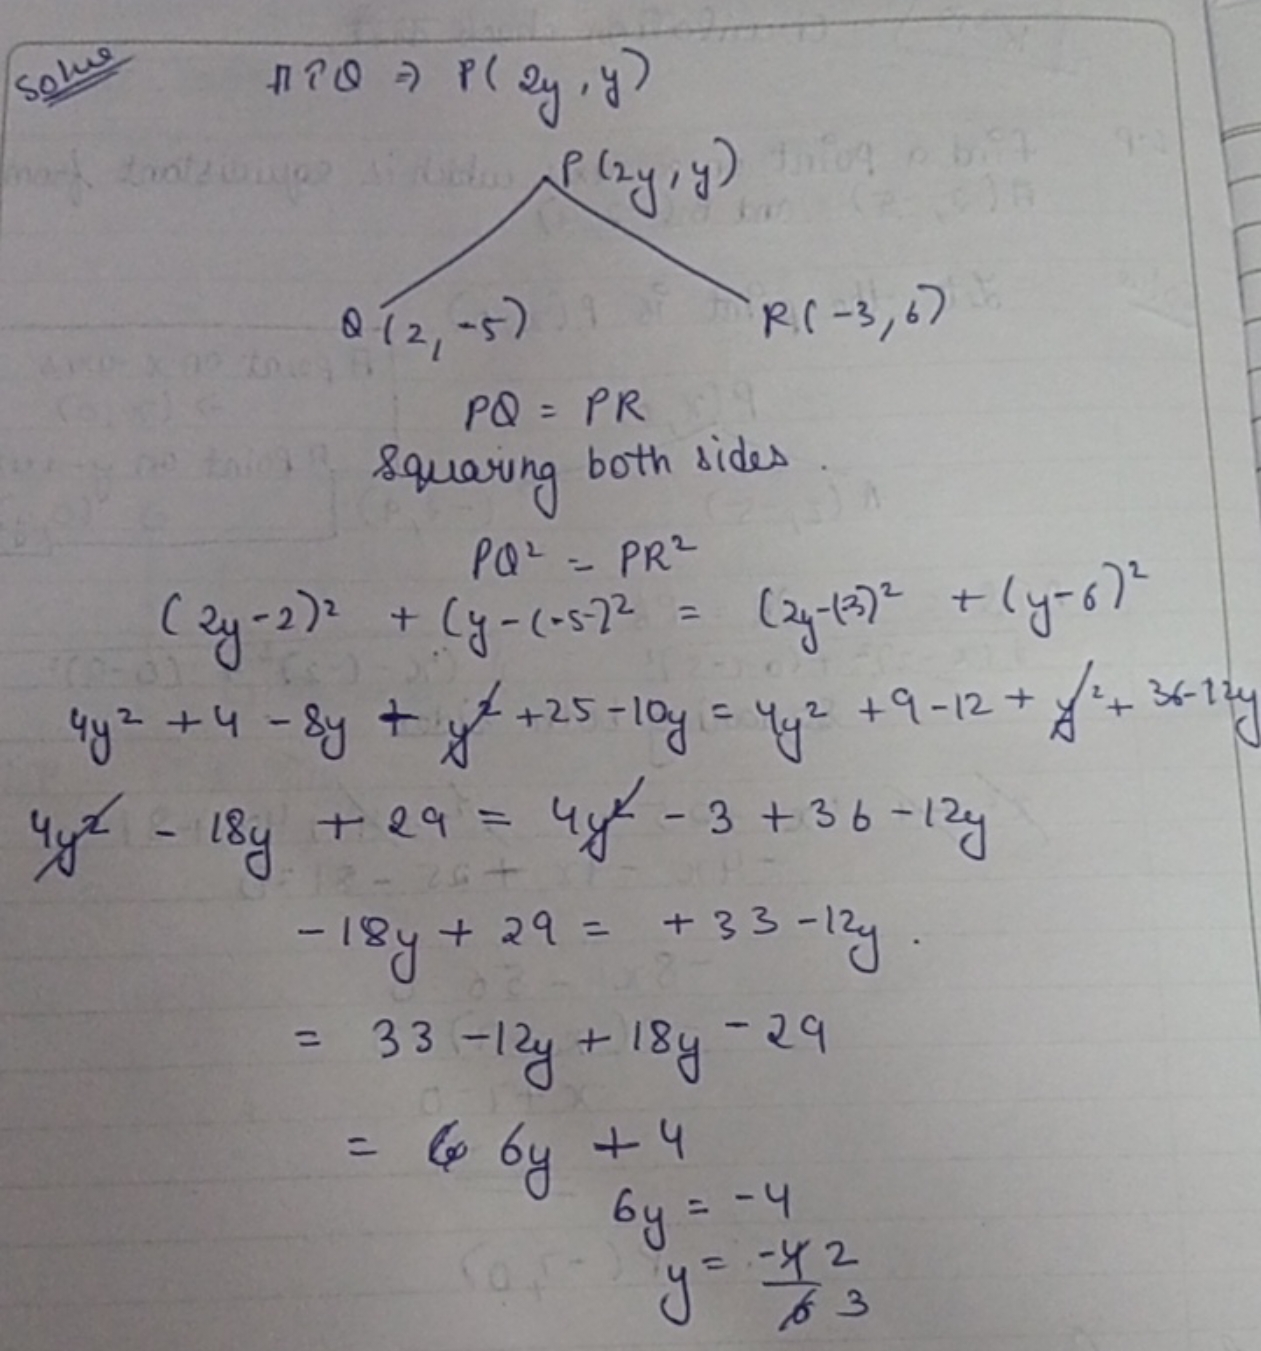 Solve
ATQ ⇒ P( 2y , y )
P (2y , y)
Q (2, -5)
R( -3, 6)
PQ = PR
Squaring both sides .
PQ² = PR²
( 2y - 2)² + (y - (-5)² = (2y-(3)² + (y-6)²
4y² + 4 - 8y + y² + 25 - 10y = 4y² + 9 - 12 + y² + 36-12y
4y² - 18y + 29 = 4y² - 3 + 36 - 12y
- 18y + 29 = + 33 - 12y .
= 33 - 12y + 18y - 29
= 6y + 4
6y = -4
y = -4 2
6 3